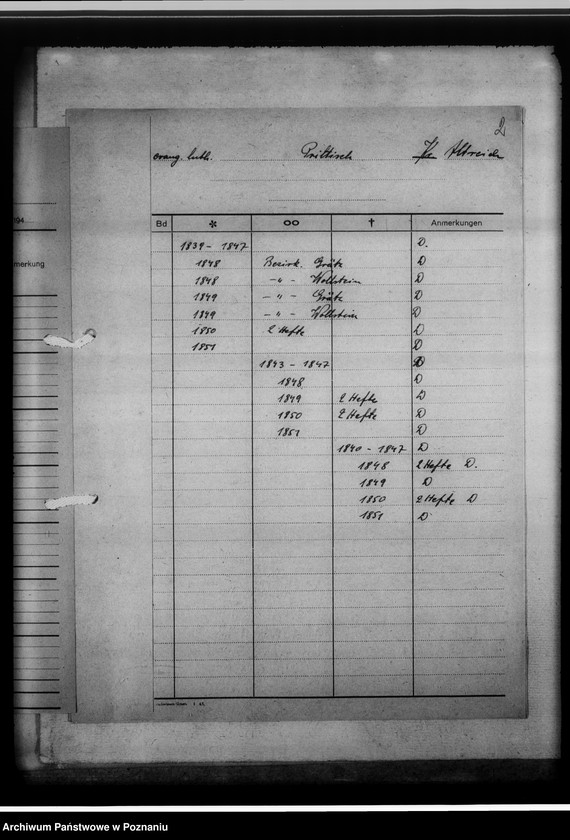 2
evang. luth. Prittisch Altreich
Bd * ∞ † Anmerkungen
1839 - 1847 D.
1848 Bezirk. Grätz D
1848 - " - Wollstein D
1849 - " - Grätz D
1849 - " - Wollstein D
1850 2 Hefte D
1851 D
1843 - 1847 D
1848 D
1849 2 Hefte D
1850 2 Hefte D
1851 D
1840 - 1847 D
1848 2 Hefte D.
1849 D
1850 2 Hefte D
1851 D
194
merkung
Archiwum Państwowe w Poznaniu